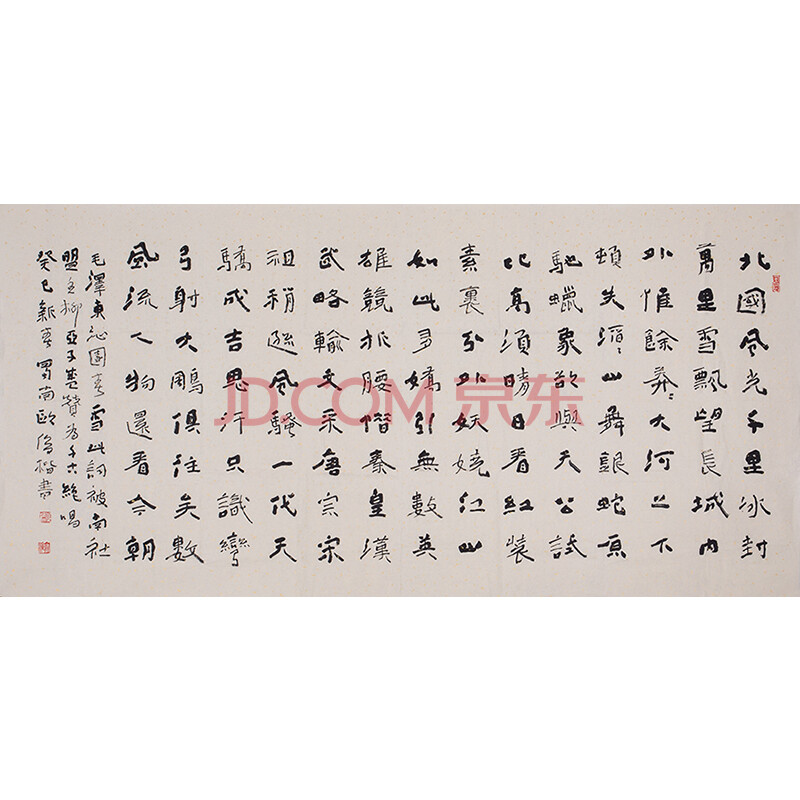 北國風光千里冰封
萬里雪飄望長城內
外惟餘莽〻大河上下
頓失滔〻山舞銀蛇原
馳蠟象欲與天公試
比高須晴日看紅裝
素裹分外妖嬈江山
如此多嬌引無數英
雄競折腰惜秦皇漢
武略輸文采唐宗宋
祖稍遜風騷一代天
驕成吉思汗只識彎
弓射大鵰俱往矣數
風流人物還看今朝
毛澤東沁園春雪此詞被南社
盟主柳亞子盛贊為千古絕唱
癸巳新春蜀南歐楷書
JDCOM 京东